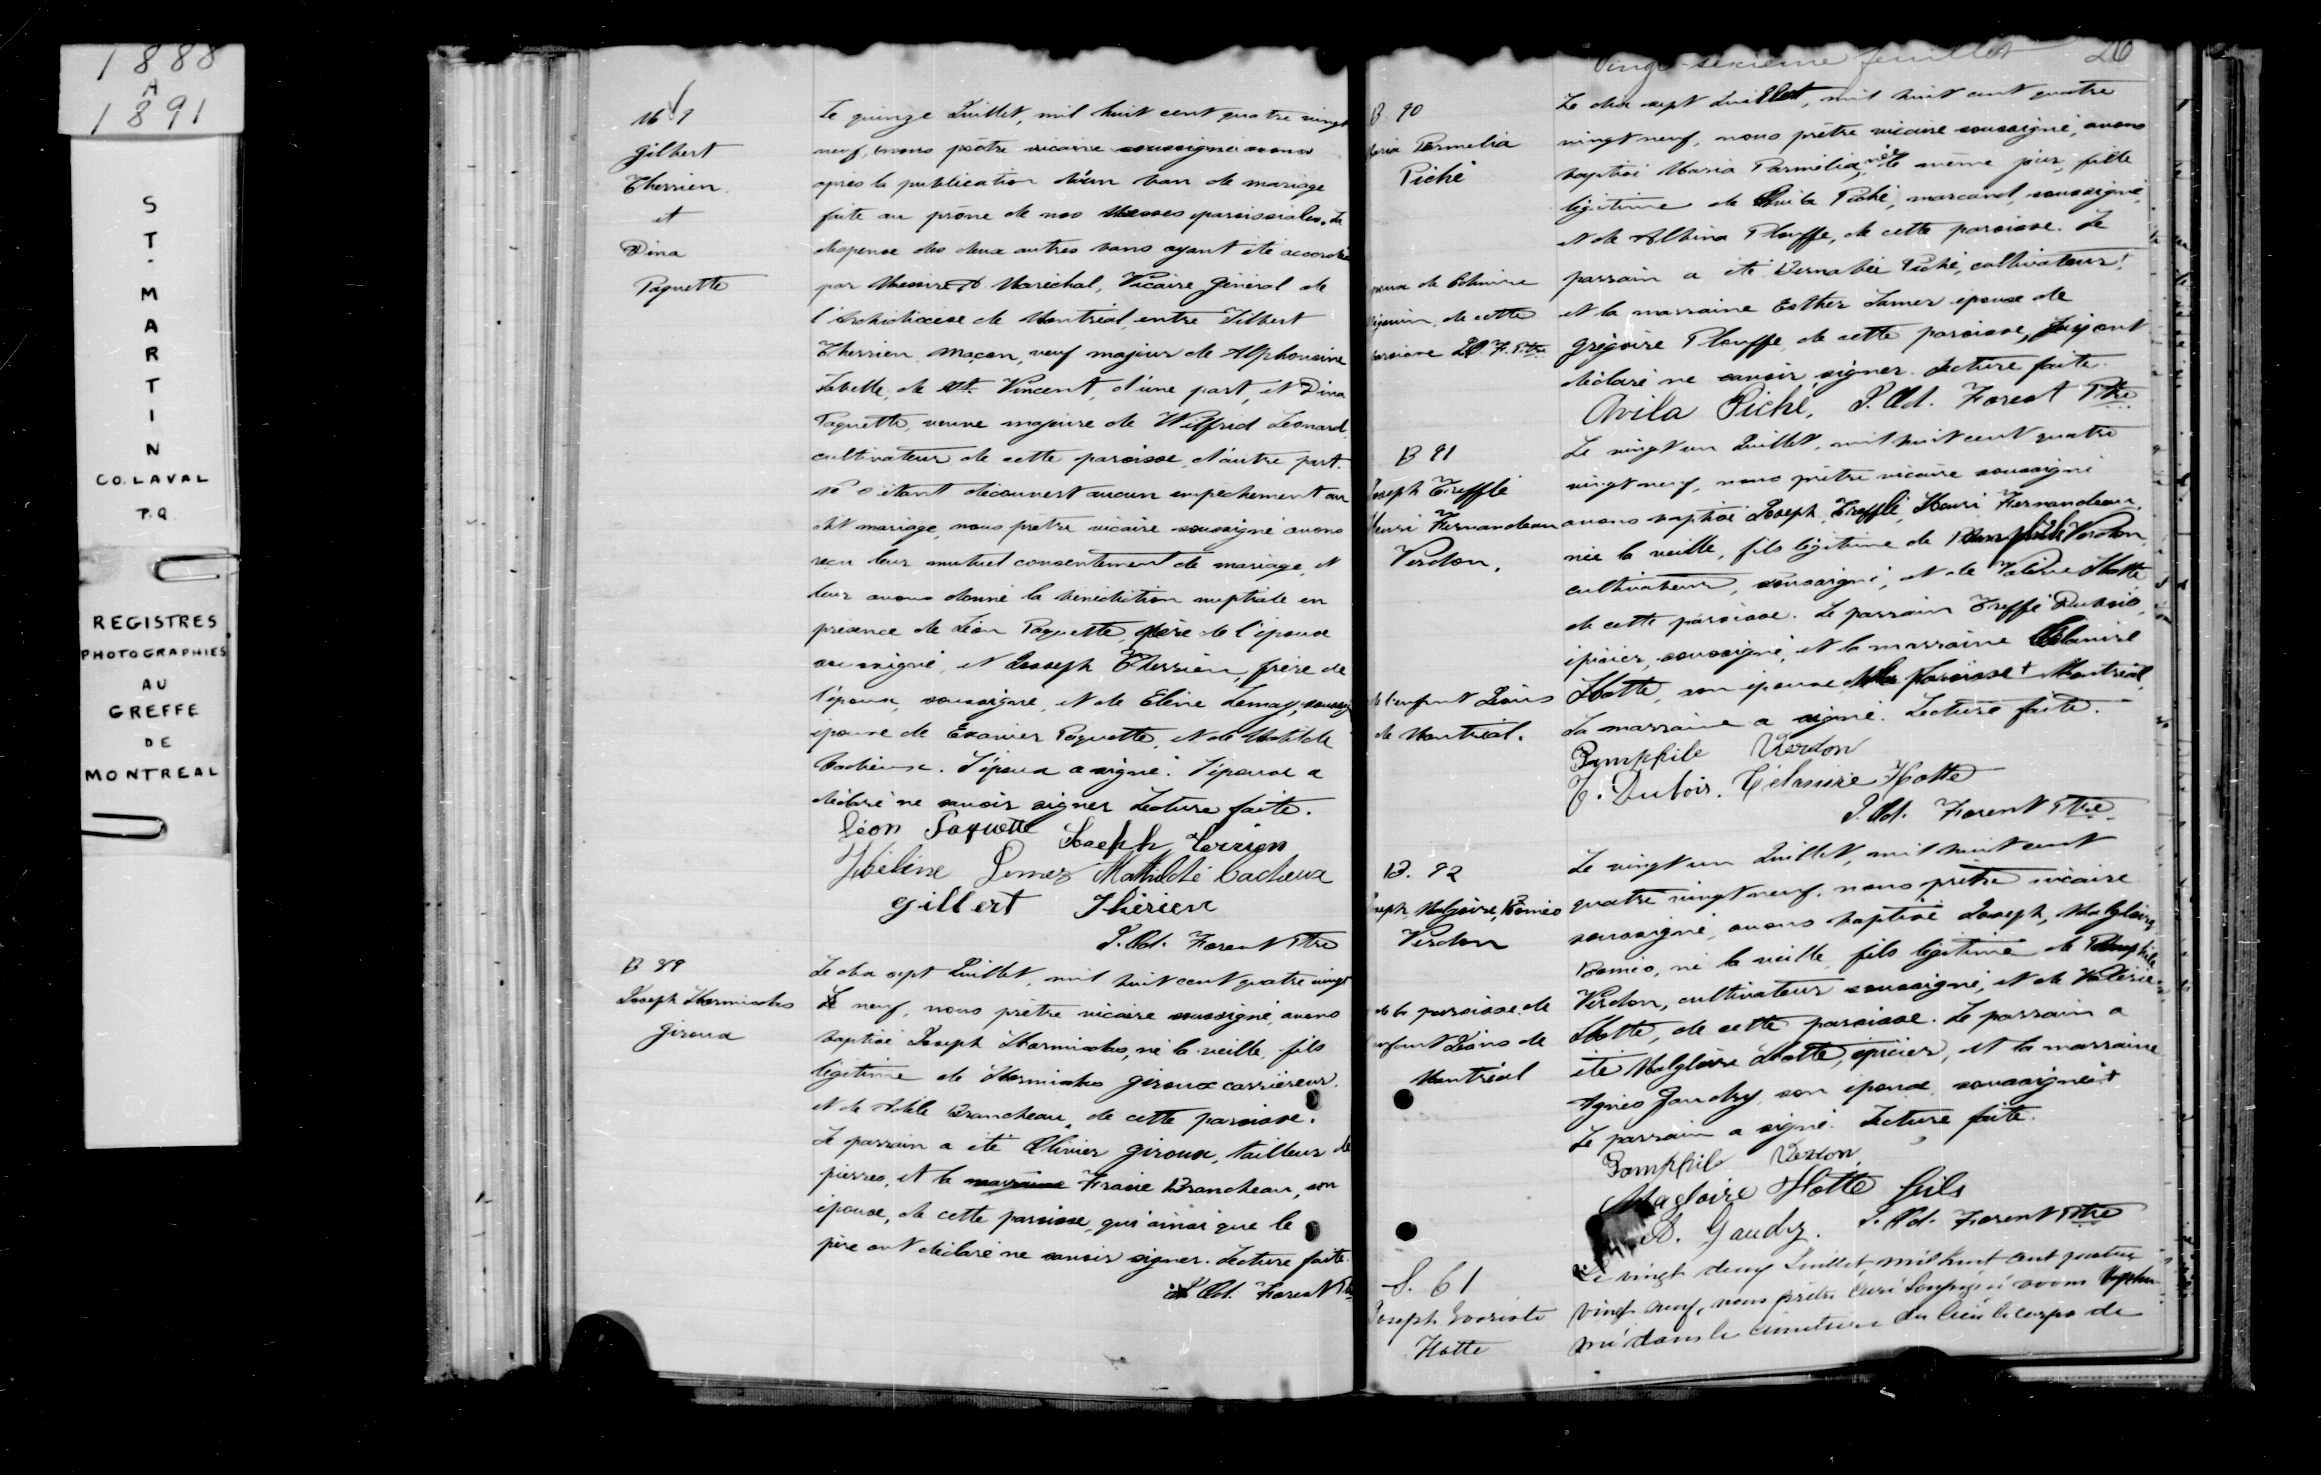 1888
A
1891
ST. MARTIN
CO. LAVAL
P.Q.
REGISTRES
PHOTOGRAPHIES
AU
GREFFE
DE
MONTREAL
M 9
Gilbert
Therrien
et
Dina
Paquette
Le quinze Juillet, mil huit cent quatre vingt
neuf, nous prêtre vicaire soussigné avons
après la publication d'un ban de mariage
faite au prône de nos Messes paroissiales, la
dispense des deux autres bans ayant été accordée
par Messire Maréchal, Vicaire Général de
l'Archidiocèse de Montréal, entre Gilbert
Therrien, maçon, veuf majeur de Alphonsine
Labelle, de St. Vincent, d'une part, et Dina
Paquette, veuve majeure de Wilfrid Léonard,
cultivateur de cette paroisse, d'autre part.
Ne s'étant découvert aucun empêchement au
dit mariage, nous prêtre vicaire soussigné avons
reçu leur mutuel consentement de mariage, et
leur avons donné la bénédiction nuptiale en
présence de Léon Paquette, père de l'épouse
soussigné, et Joseph Therrien, frère de
l'époux, soussigné, et de Elène Lemay,
épouse de Paquette, et de Matilde
Cadieux. L'époux a signé. L'épouse a
déclaré ne savoir signer Lecture faite.
Léon Paquette Joseph Terrien
Hélène Mathilde Cadieux
Gilbert Thérien
J. Ad. Forest Ptre
B 89
Joseph Hormisdas
Giroux
Le dix sept Juillet, mil huit cent quatre vingt
neuf, nous prêtre vicaire soussigné, avons
baptisé Joseph Hormisdas, né la veille, fils
légitime de Hormisdas Giroux carriéreur,
et de Adèle Brancheau, de cette paroisse.
Le parrain a été Olivier Giroux, tailleur de
pierres, et la marraine Brancheau, son
épouse, de cette paroisse, qui ainsi que le
père ont déclaré ne savoir signer. Lecture faite.
J. Ad. Forest Ptre
Vingt-sixième feuillet 26
B. 90
Maria Parmelia
Piché
Le dix sept Juillet, mil huit cent quatre
vingt neuf, nous prêtre vicaire soussigné, avons
baptisé Maria Parmélia, née le même jour, fille
légitime de Avila Piché, marchand, soussigné,
et de Albina Plouffe, de cette paroisse. Le
parrain a été Piché, cultivateur,
et la marraine Esther épouse de
Grégoire Plouffe, de cette paroisse, qui ont
déclaré ne savoir signer. Lecture faite.
de cette
paroisse
Avila Piché, J. Ad. Forest Ptre
B 91
Joseph Trefflé
Henri
Verdon.
Le vingt un Juillet, mil huit cent quatre
vingt neuf, nous prêtre vicaire soussigné
avons baptisé Joseph, Trefflé, Henri
née la veille, fils légitime de Pamphile Verdon,
cultivateur, soussigné, et de Valérie Hotte
de cette paroisse. Le parrain Trefflé Dubois,
épicier, soussigné, et la marraine Célanire
Hotte, son épouse de la paroisse + Montréal,
La marraine a signé. Lecture faite.
de l'enfant Jésus
de Montréal.
Pamphile Verdon
T. Dubois. Célanire Hotte
J. Ad. Forest Ptre
B. 92
Joseph, Malgloire, Roméo
Verdon
Le vingt un Juillet, mil huit cent
quatre vingt neuf, nous prêtre vicaire
soussigné, avons baptisé Joseph, Malgloire,
Roméo, né la veille, fils légitime de Pamphile
Verdon, cultivateur soussigné, et de Valérie
Hotte, de cette paroisse. Le parrain a
été Malgloire Hotte, épicier, et la marraine
Agnès Gaudry, son épouse soussignée +
Le parrain a signé. Lecture faite.
de la paroisse de
l'enfant Jésus de
Montréal
Pamphile Verdon
Magloire Hotte fils
A. Gaudry. J. Ad. Forest Ptre
S. 61
Joseph Evariste
Hotte
Le vingt deux Juillet, mil huit cent quatre
vingt neuf, nous prêtre curé soussigné avons inhu-
mé dans le cimetière du lieu le corps de